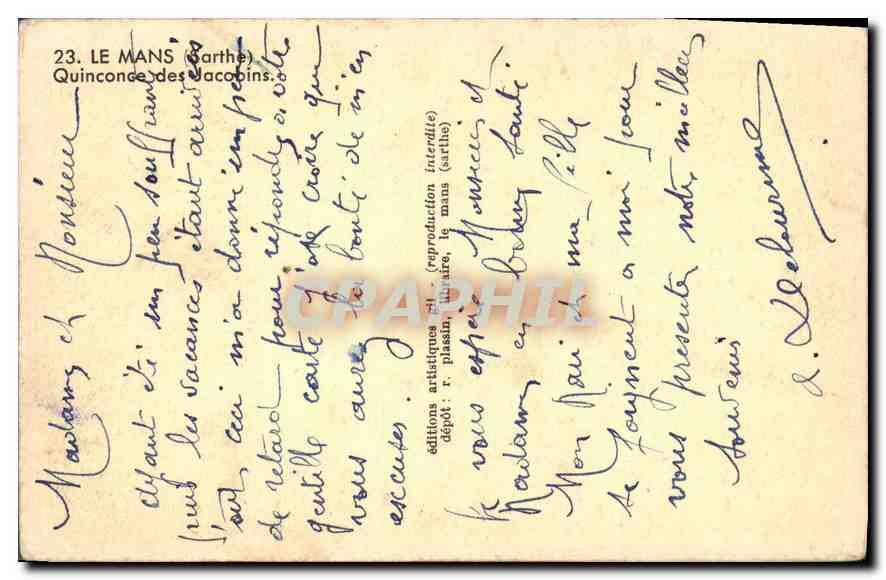 23. LE MANS (Sarthe)
Quinconce des Jacobins.
Madame et Monsieur
ayant été un peu souffrante
puis les vacances étant arrivées
ceci m'a donné un peu
de retard pour répondre à votre
gentille carte j'ose croire que
vous aurez la bonté de m'en
excuser.
éditions artistiques gil. - (reproduction interdite)
dépôt : r. plassin, libraire, le mans (sarthe)
Je vous espère Monsieur et
Madame, en bonne santé.
Mon Mari et ma fille
se joignent à moi pour
vous présenter notre meilleur
souvenir
CPAPHIL.COM